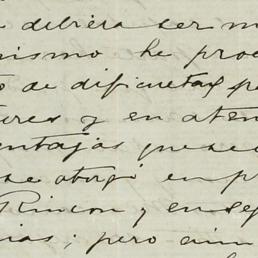 debiera ser m
nismo he proc
o de dificultad pe
tures y en aten
entajas que se
se otorgó en p
Rincon y en seg
ias; pero aun